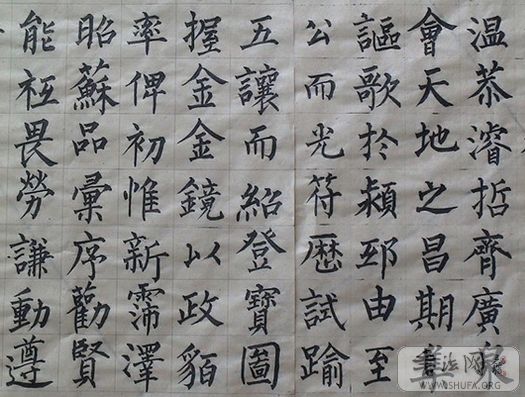 溫恭濬哲齊廣
會天地之昌期
謳歌於潁邳由至
公而光符歷試踰
五讓而紹登寶圖
握金金鏡以政貊
率俾初惟新霈澤
昭蘇品彙序勸賢
能祗畏勞謙動遵
WWW.SHUFA.ORG